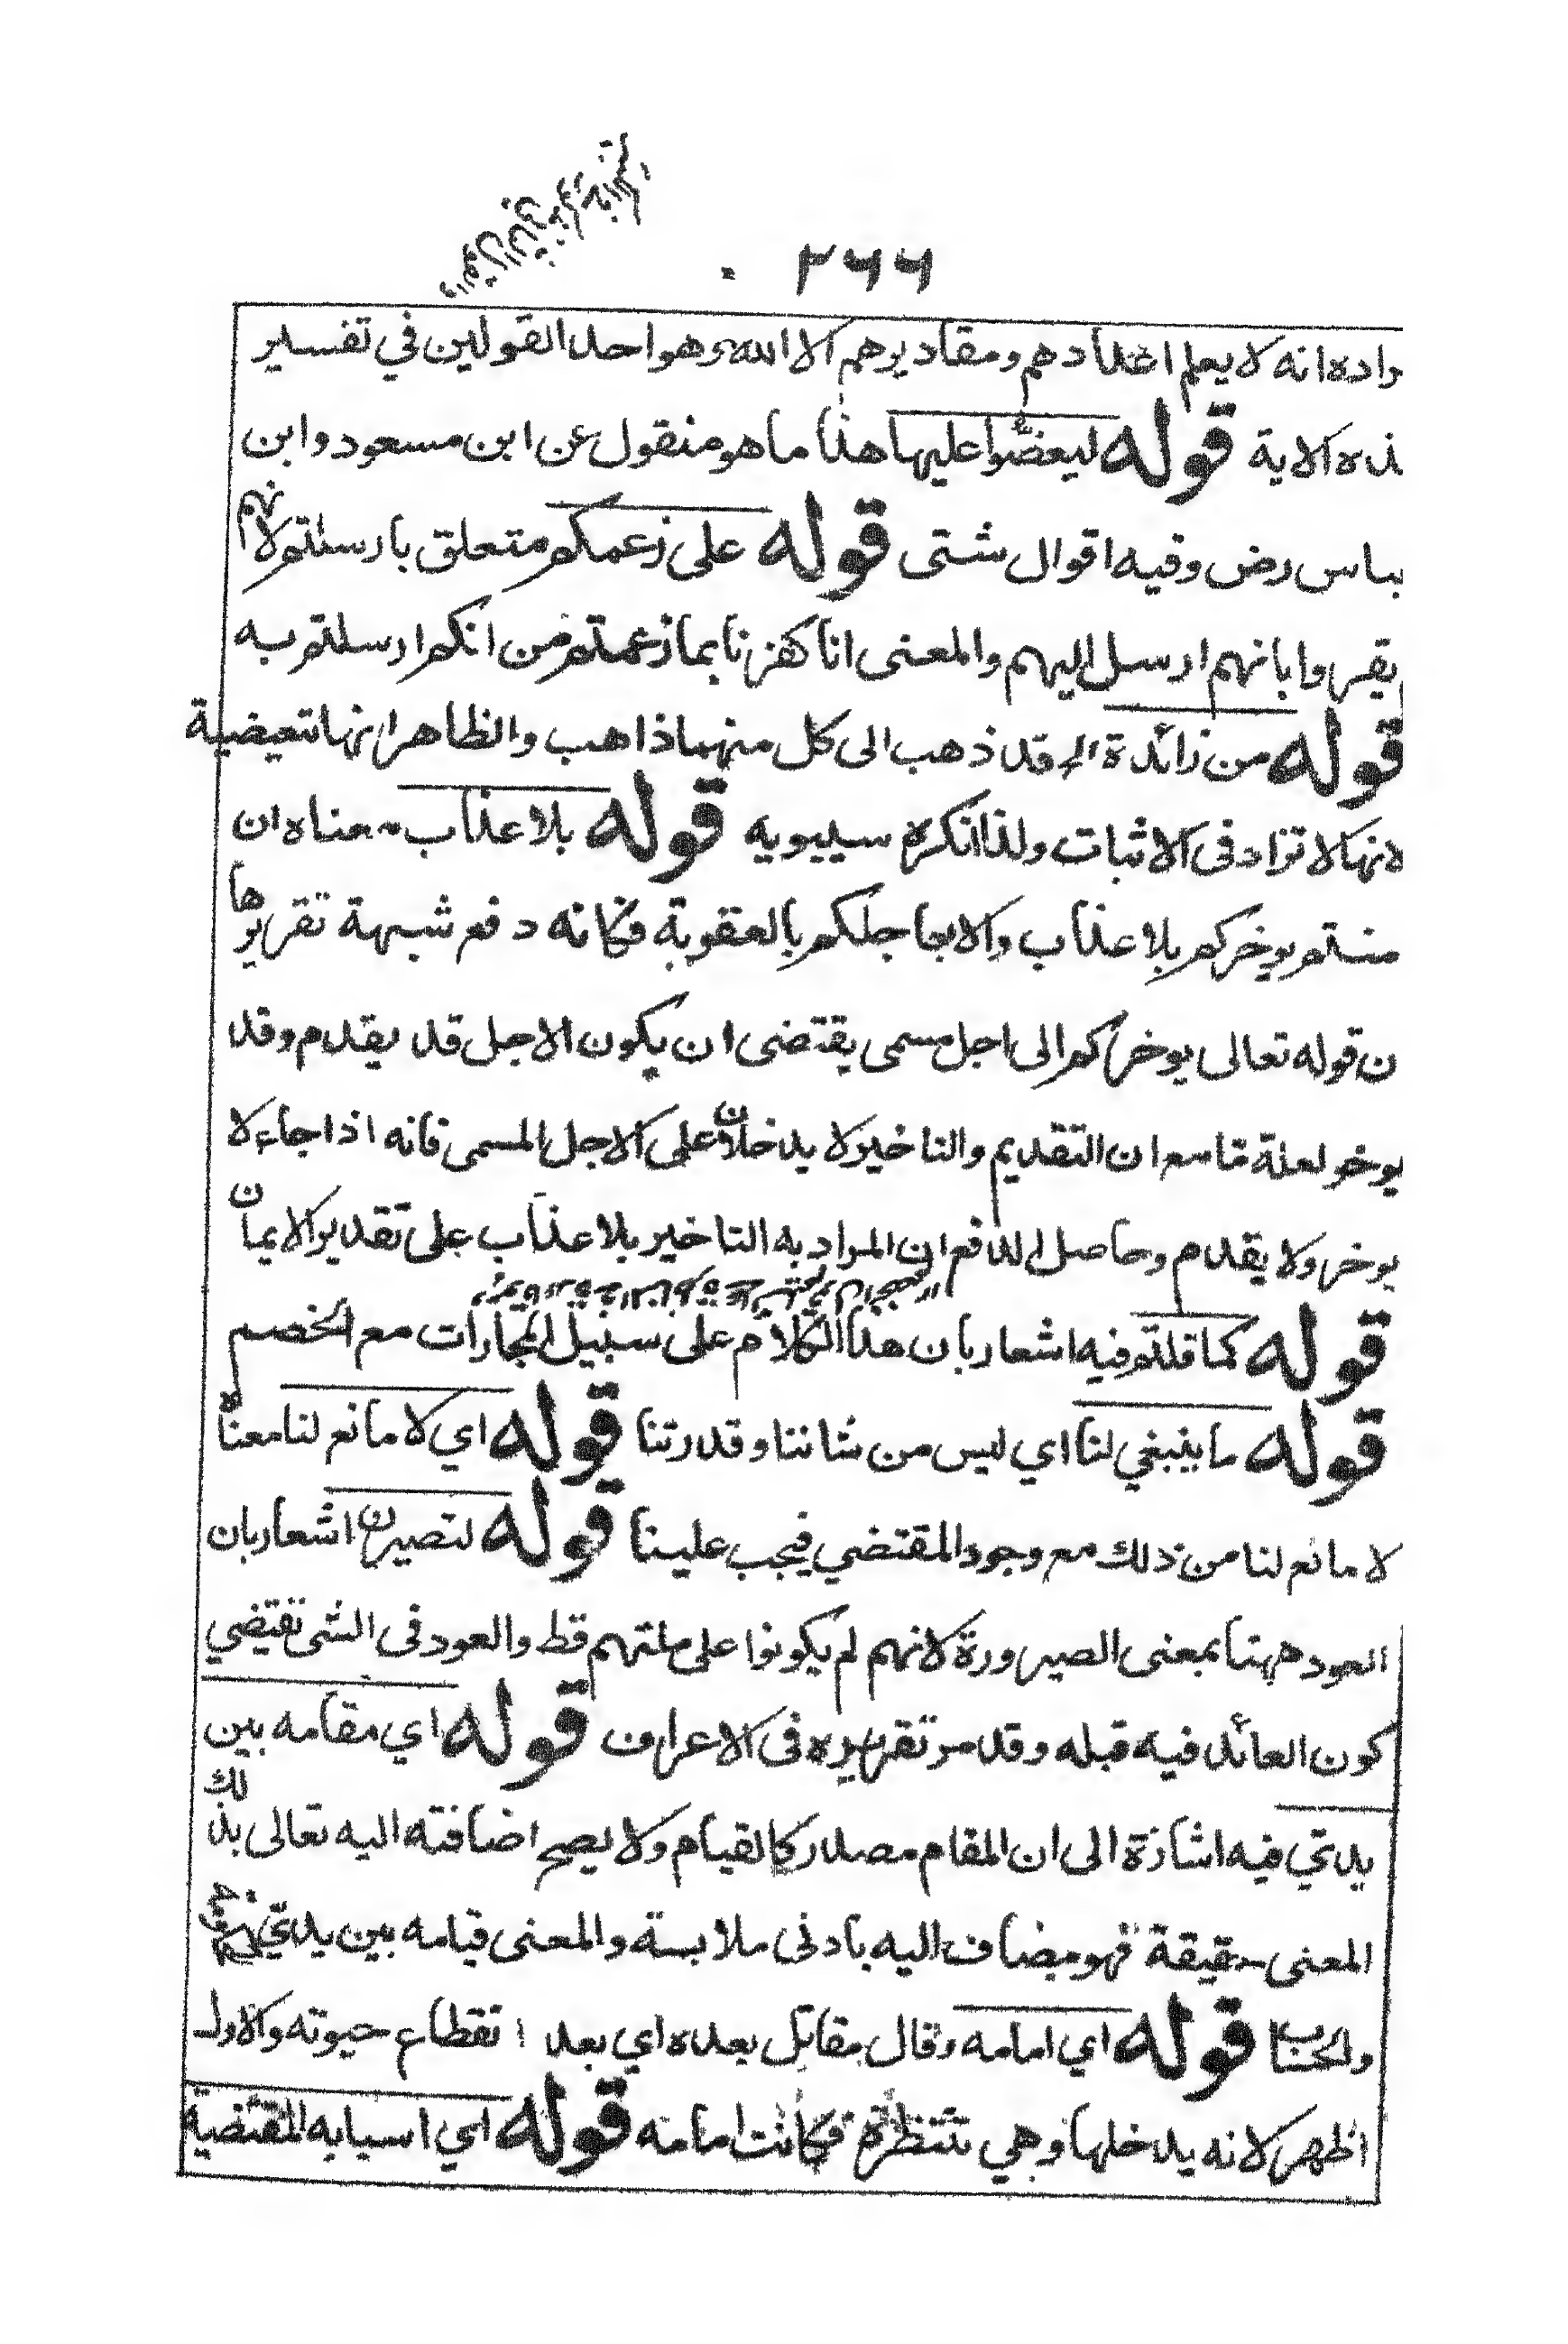 ٢٦٦
راده انه لا يعلم اعدادهم ومقاديرهم الا الله وهو احد القولين في تفسير
ذه الاية قوله ليعضوا عليها هذا ما هو منقول عن ابن مسعود وابن
باس رض وفيه اقوال شتى قوله على زعمكم متعلق بارسلتم لانهم
يقروا بانهم ارسل اليهم والمعنى انا كفرنا بما زعمتم من انكم ارسلتم به
قوله من زائدة الخ قد ذهب الى كل منهما ذاهب والظاهر انها تبعيضية
لانها لا تزاد في الاثبات ولذا انكره سيبويه قوله بلا عذاب معناه ان
منتم يوخركم بلا عذاب والا يعاجلكم بالعقوبة فكانه دفع شبهة تقريرها
ن قوله تعالى يوخركم الى اجل مسمى يقتضى ان يكون الاجل قد يقدم وقد
يوخر لعلة ما مع ان التقديم والتاخير لا يدخلان على الاجل المسمى فانه اذا جاء لا
يوخر ولا يقدم وحاصل الدفع ان المراد به التاخير بلا عذاب على تقدير الايمان
قوله كما قلتم فيه اشعار بان هذا الكلام على سبيل المجارات مع الخصم
قوله ما ينبغي لنا اي ليس من شاننا وقدرتنا قوله اي لا مانع لنا معناه
لا مانع لنا من ذلك مع وجود المقتضي فيجب علينا قوله لتصيرن اشعار بان
العود ههنا بمعنى الصيرورة لانهم لم يكونوا على ملتهم قط والعود فى الشى تقتيضي
كون العائد فيه قبله وقد مر تقريره فى الاعراف قوله اي مقامه بين
يدتي فيه اشارة الى ان المقام مصدر كالقيام ولا يصح اضافته اليه تعالى بذلك
المعنى حقيقة فهو مضاف اليه بادنى ملابسة والمعنى قيامه بين يدتي
والحساب قوله اي امامه وقال مقاتل بعده اي بعد انقطاع حيوته والاول
اظهر لانه يدخلها وهي تنتظره فكانت امامه قوله اي اسبابه المقتضية